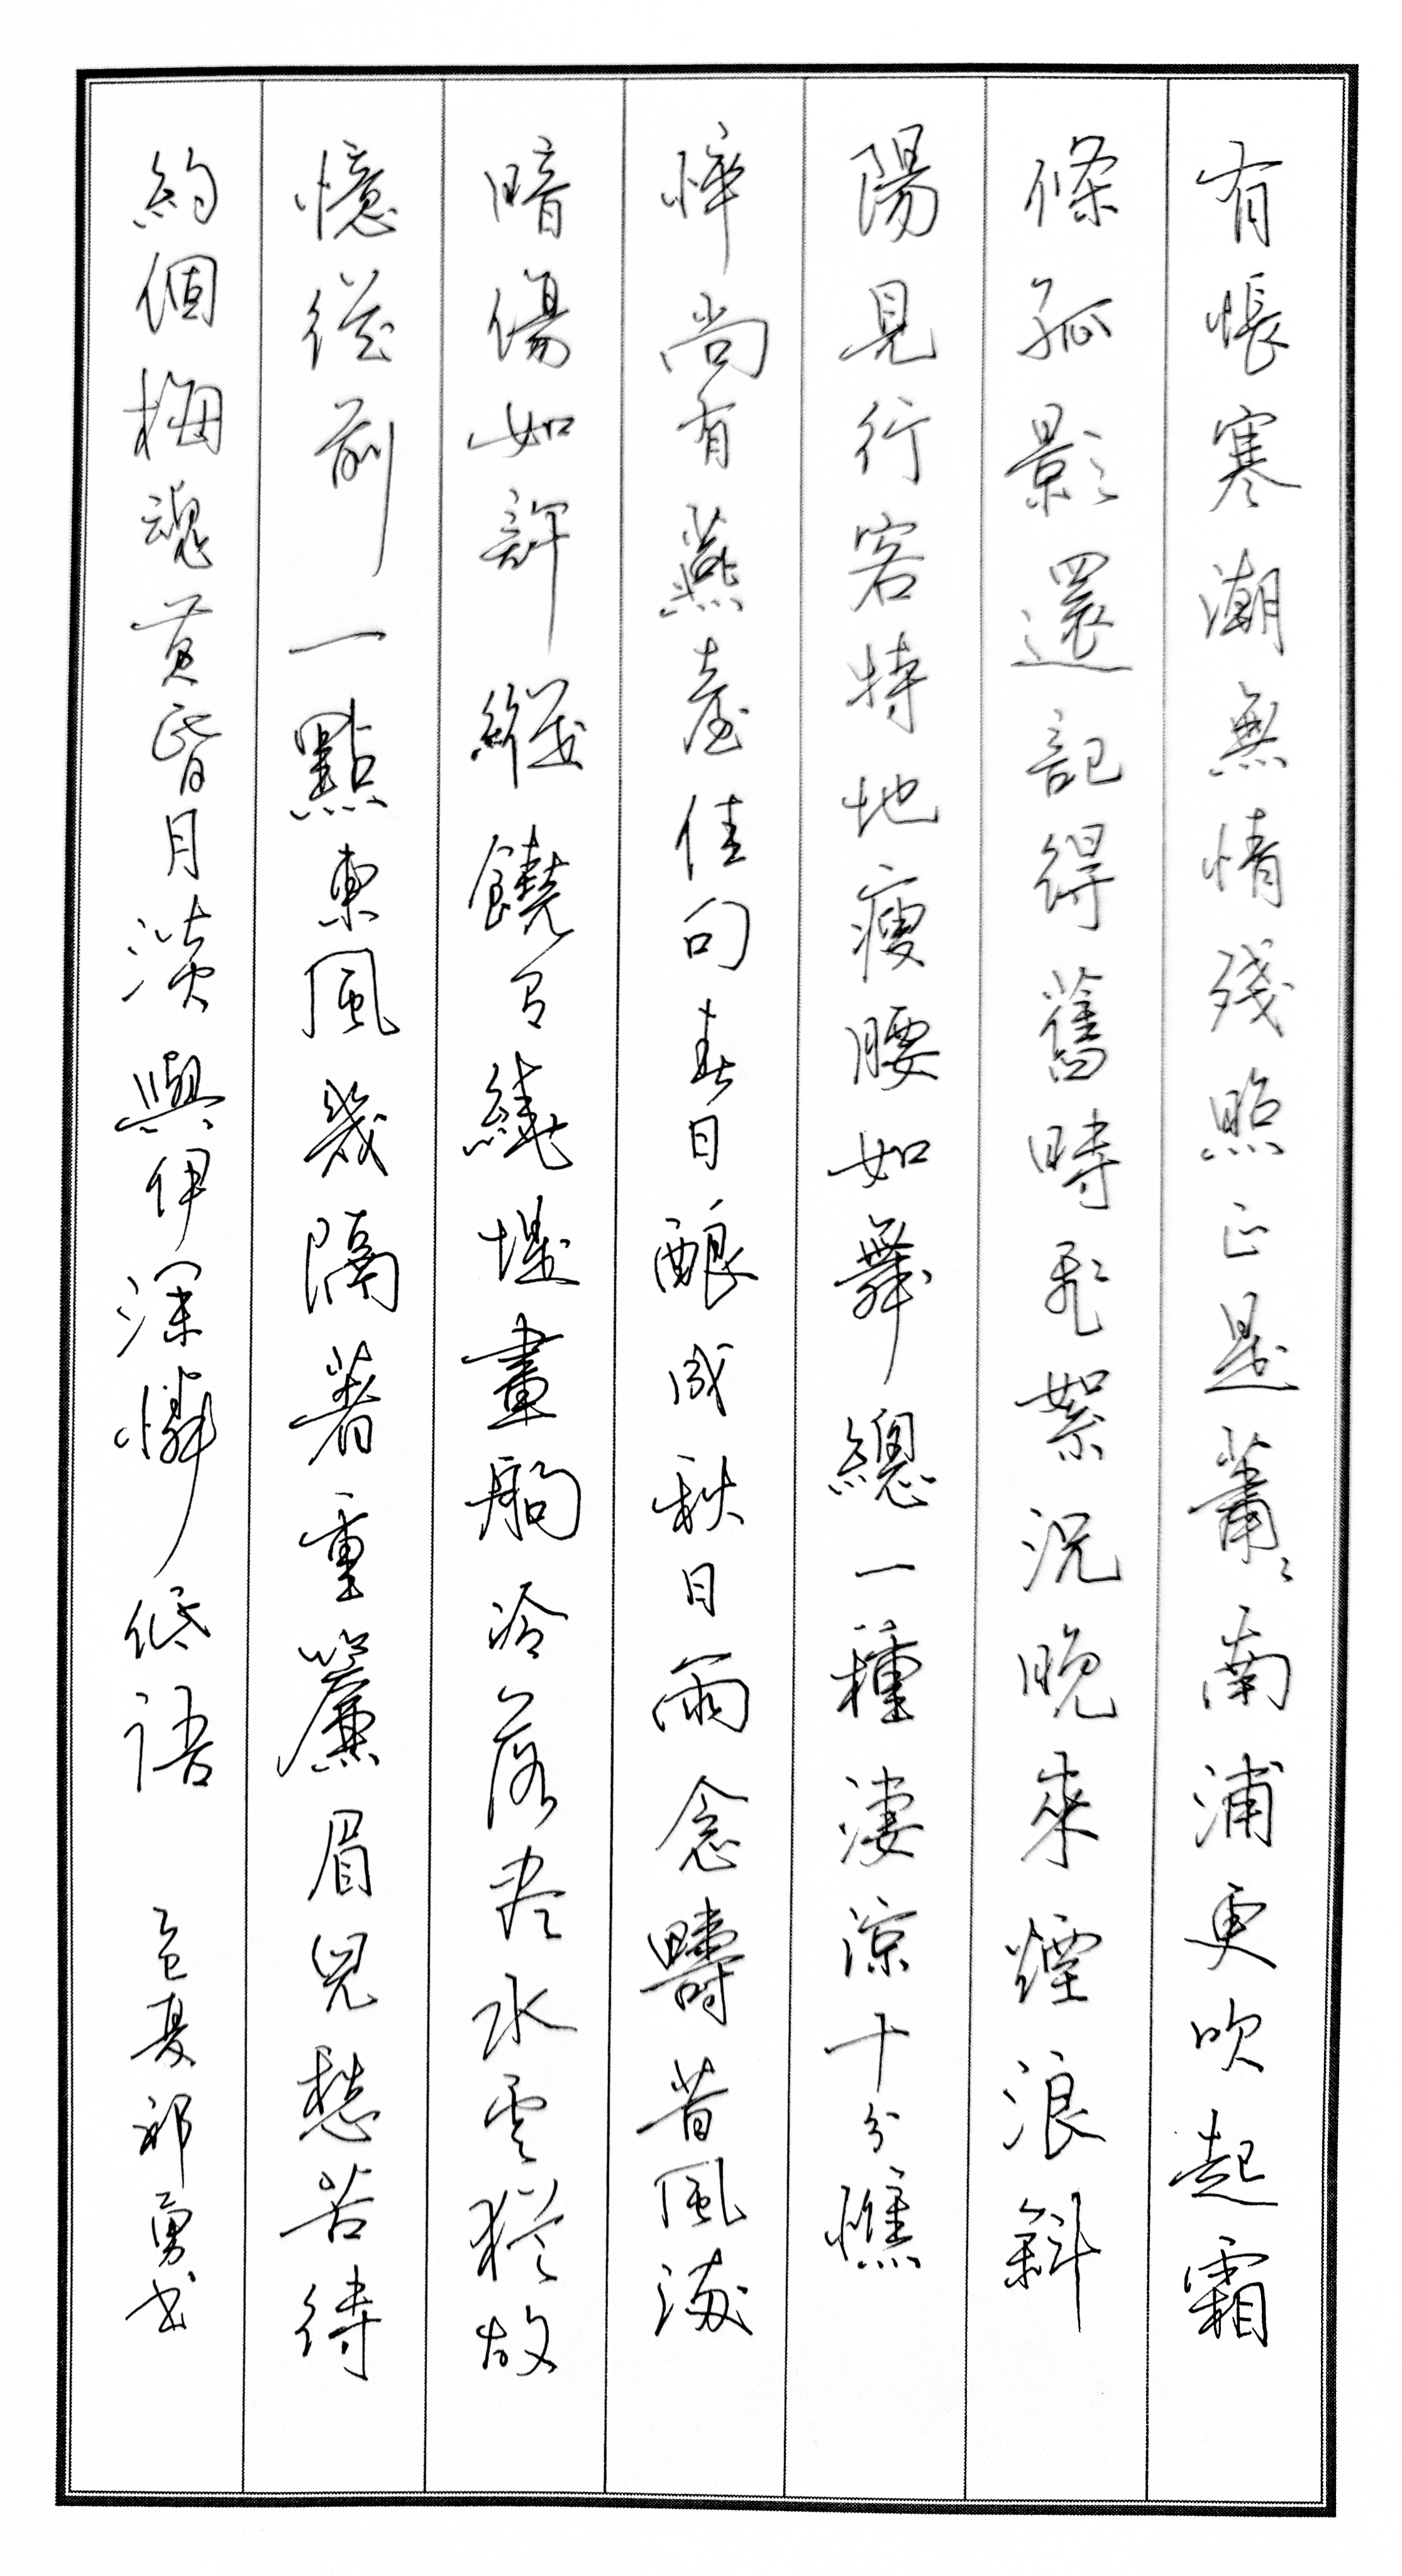 有悵寒潮無情殘照正是蕭〻南浦更吹起霜
條孤影還記得舊時飛絮況晚來煙浪斜
陽見行客特地瘦腰如舞總一種淒涼十分憔
悴尚有燕臺佳句春日釀成秋日雨念疇昔風流
暗傷如許縱饒有繞堤畫舸冷落盡水雲猶故
憶從前一點東風幾隔著重簾眉兒愁苦待
約個梅魂黃昏月淡與伊深憐低語 乙巳夏祁勇書